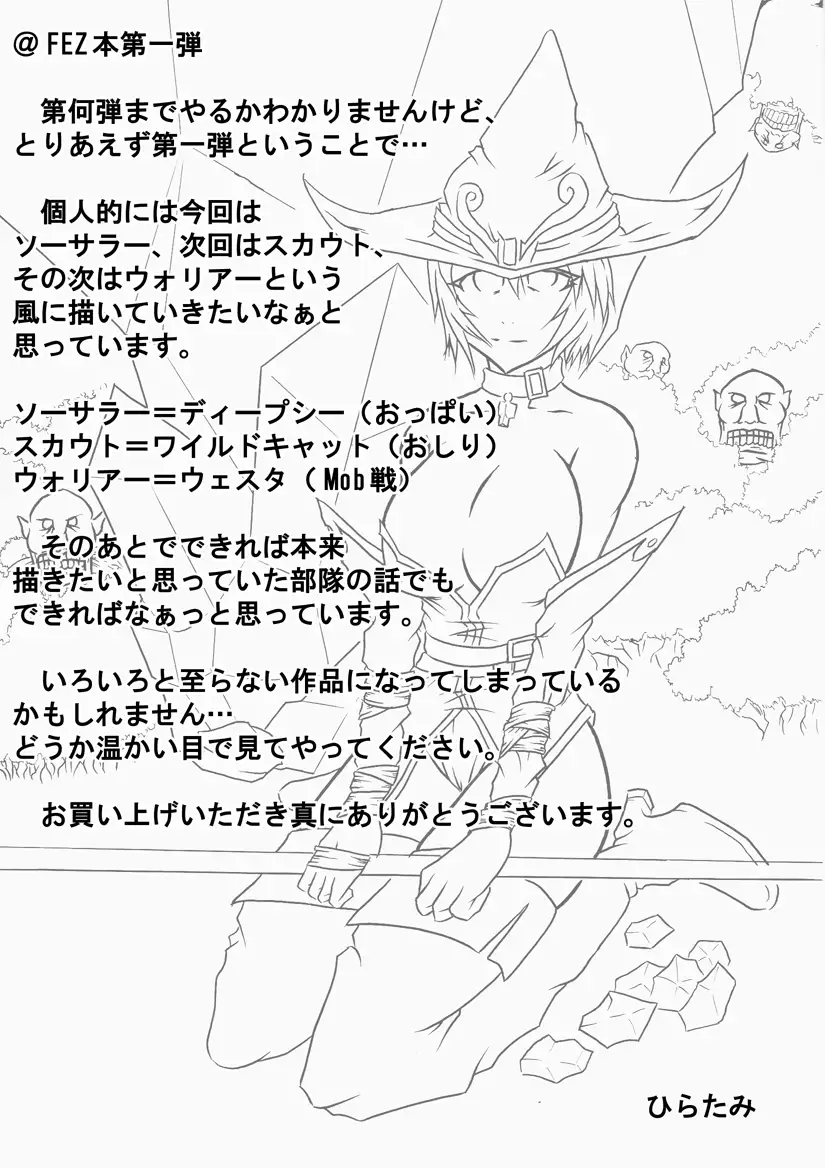 @FEZ本第一弾
第何弾までやるかわかりませんけど、
とりあえず第一弾ということで…
個人的には今回は
ソーサラー、次回はスカウト、
その次はウォリアーという
風に描いていきたいなぁと
思っています。
ソーサラー＝ディープシー（おっぱい）
スカウト＝ワイルドキャット（おしり）
ウォリアー＝ウェスタ（Mob戦）
そのあとでできれば本来
描きたいと思っていた部隊の話でも
できればなぁっと思っています。
いろいろと至らない作品になってしまっている
かもしれません…
どうか温かい目で見てやってください。
お買い上げいただき真にありがとうございます。
ひらたみ